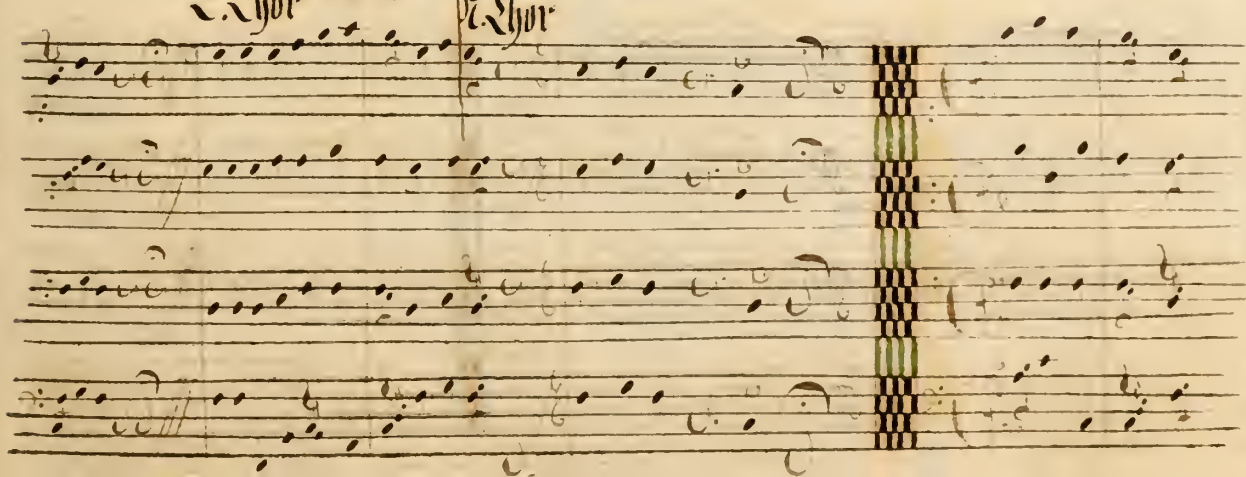 L. Chor N. Chor